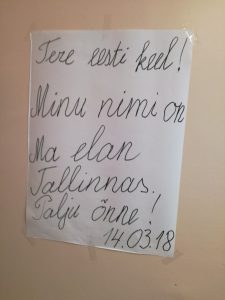 Tere eesti keel!
Minu nimi on
Ma elan
Tallinnas.
Palju õnne!
14.03.18